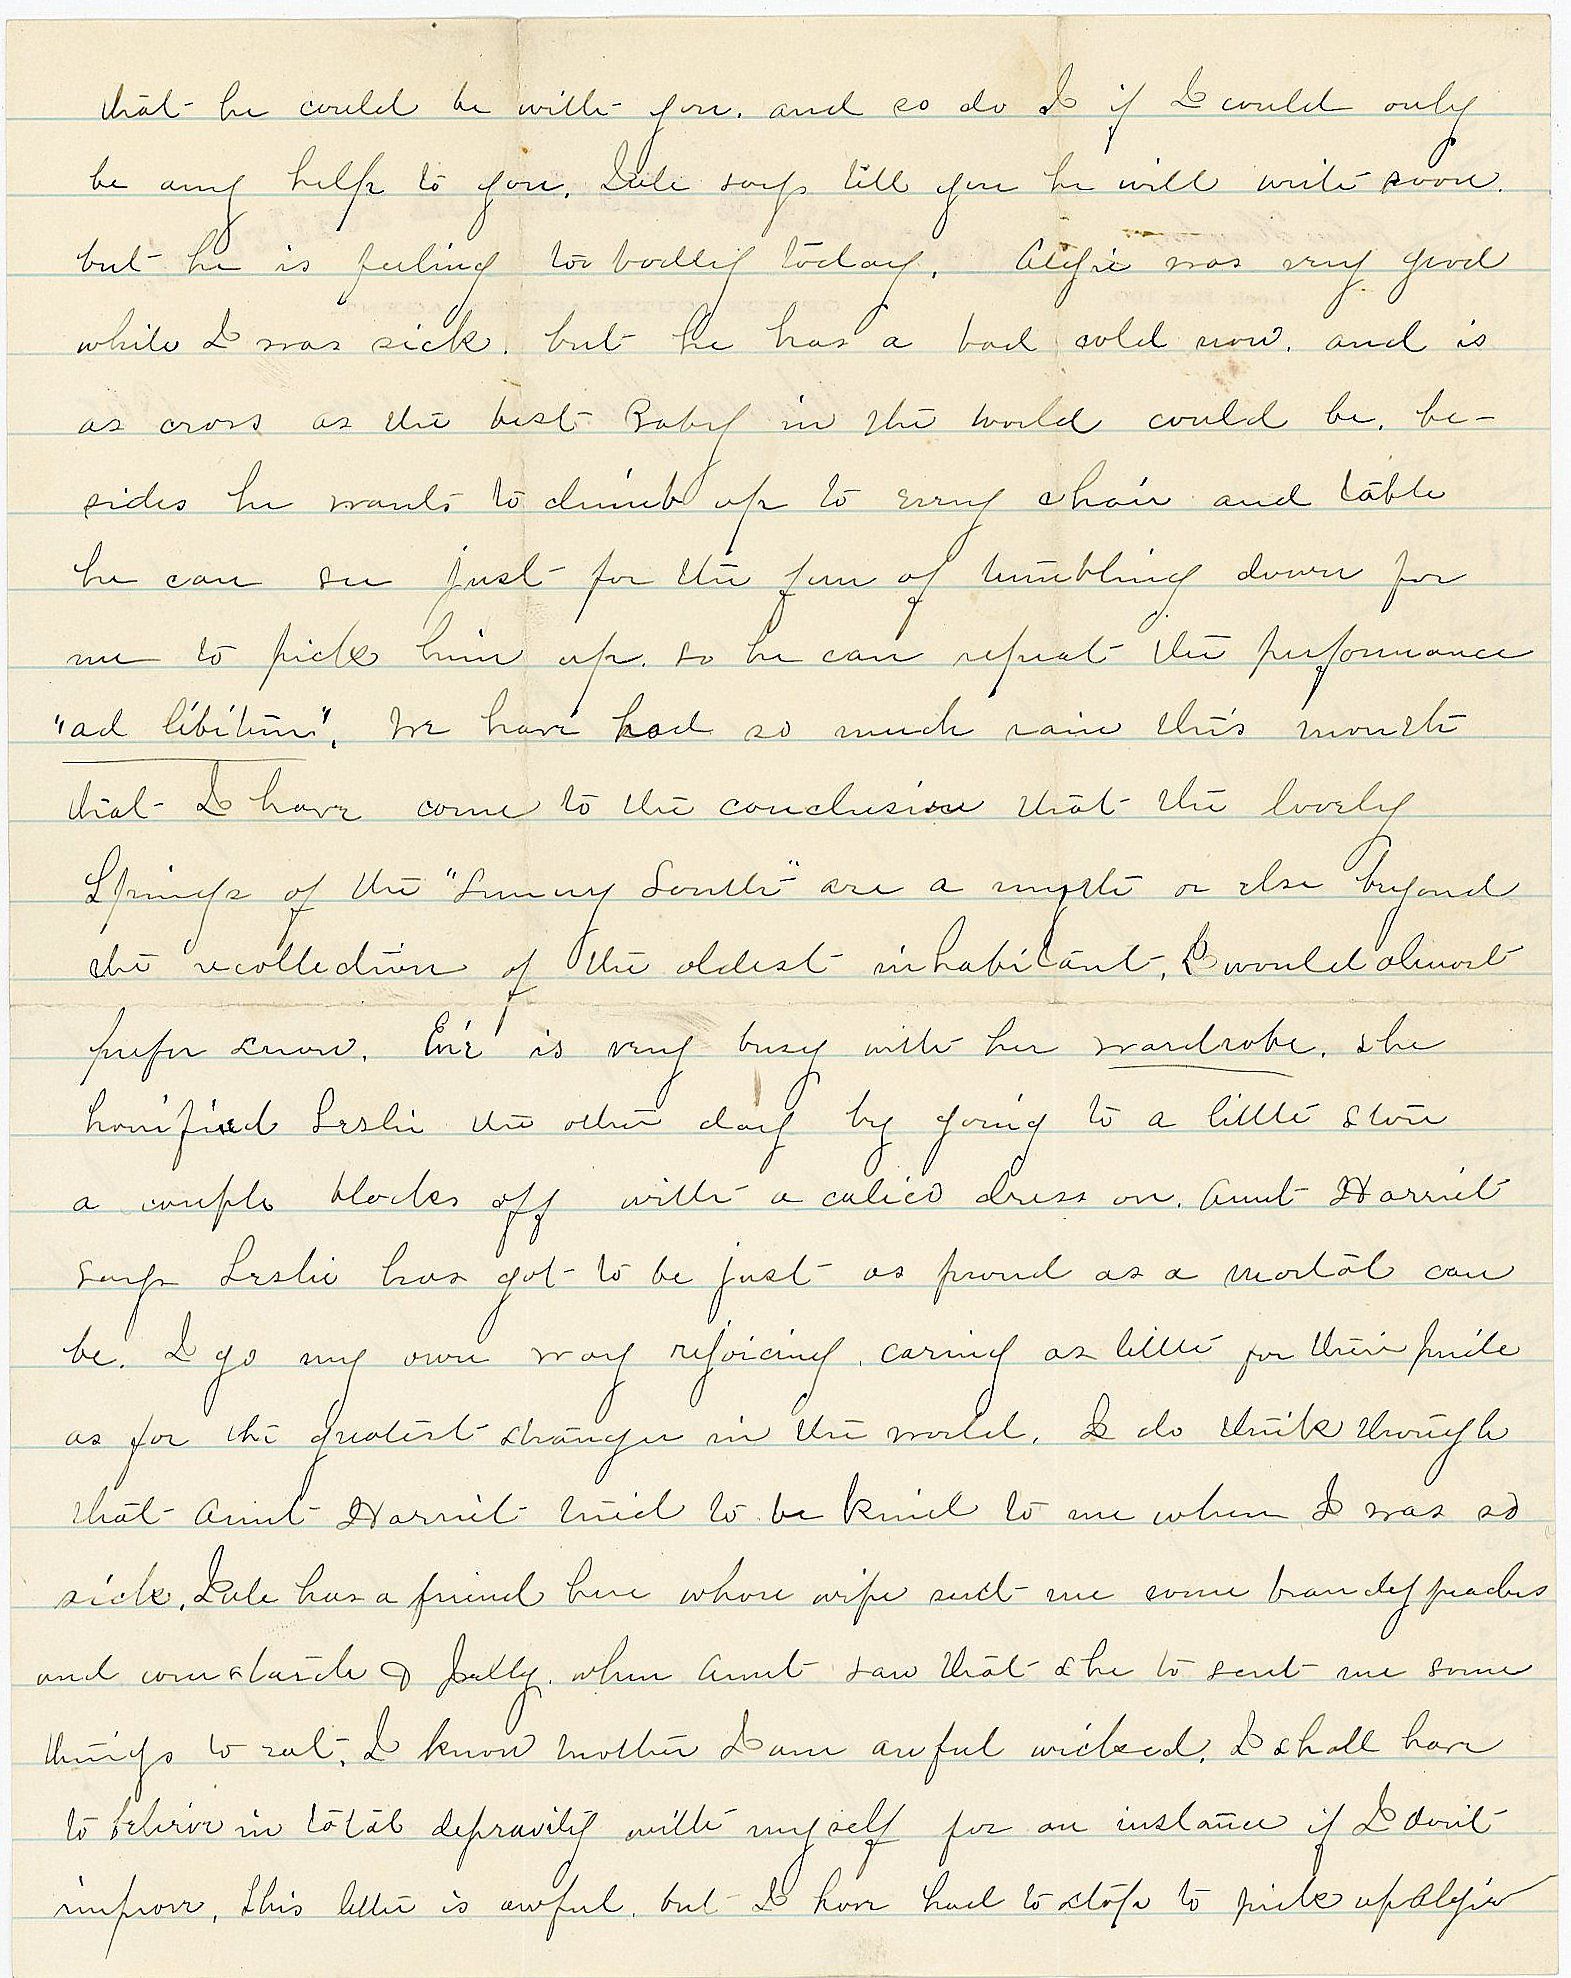 that he could be with you. and so do I if I could only
be any help to you. Dale says tell you he will write soon.
but he is feeling too badly today. Algie was very good
while I was sick. but he has a bad cold now. and is
as cross as the best Baby in the world could be. be-
sides he wants to climb up to every chair and table
he can see just for the fun of tumbling down for
me to pick him up. so he can repeat the performance
"ad libitum". We have had so much rain this month
that I have come to the conclusion that the lovely
Springs of the "Sunny South" are a myth or else beyond
the recollection of the oldest inhabitant. I would almost
prefer snow. Eve is very busy with her wardrobe. she
horrified Leslie the other day by going to a little store
a couple blocks off with a calico dress on. Aunt Harriet
says Leslie has got to be just as proud as a mortal can
be. I go my own way rejoicing. caring as little for their pride
as for the greatest stranger in the world. I do think though
that Aunt Harriet tried to be kind to me when I was so
sick. Dale has a friend here whose wife sent me some brandy peaches
and corn starch & Jelly. when Aunt saw that she to sent me some
things to eat. I know mother I am awful wicked. I shall have
to believe in total depravity with myself for an instance if I don't
improve. this letter is awful. but I have had to stop to pick up Algie